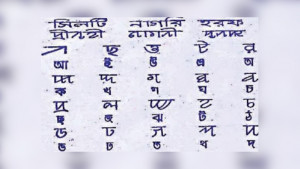 সিলেটি নাগরি হরফ
ꠀ ꠁ ꠃ ꠄ ꠅ
আ ই উ এ অ
ꠇ ꠈ ꠉ ꠊ ꠌ
ক খ গ ঘ চ
ꠍ ꠎ ꠏ ꠐ ꠑ
ছ জ ঝ ট ঠ
ꠒ ꠓ ꠔ ꠕ ꠖ
ড ঢ ত থ দ